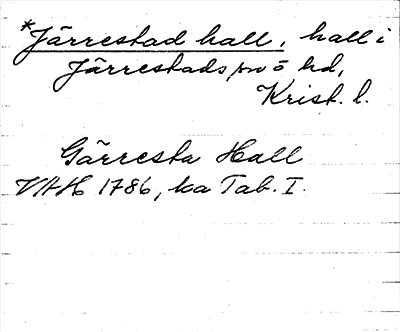 *Järrestad hall, hall i
Järrestads sn o hd,
Krist. l.
Gärresta Hall
VAH 1786, ka Tab. I.